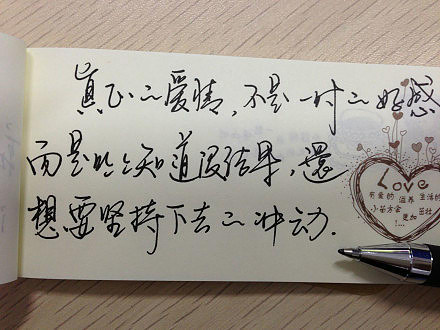 真正的爱情,不是一时的好感
而是明明知道没结果,還
想要坚持下去的冲动.
Love
有爱的 滋养 生活的
小苗方会
更加 茁壮
!...